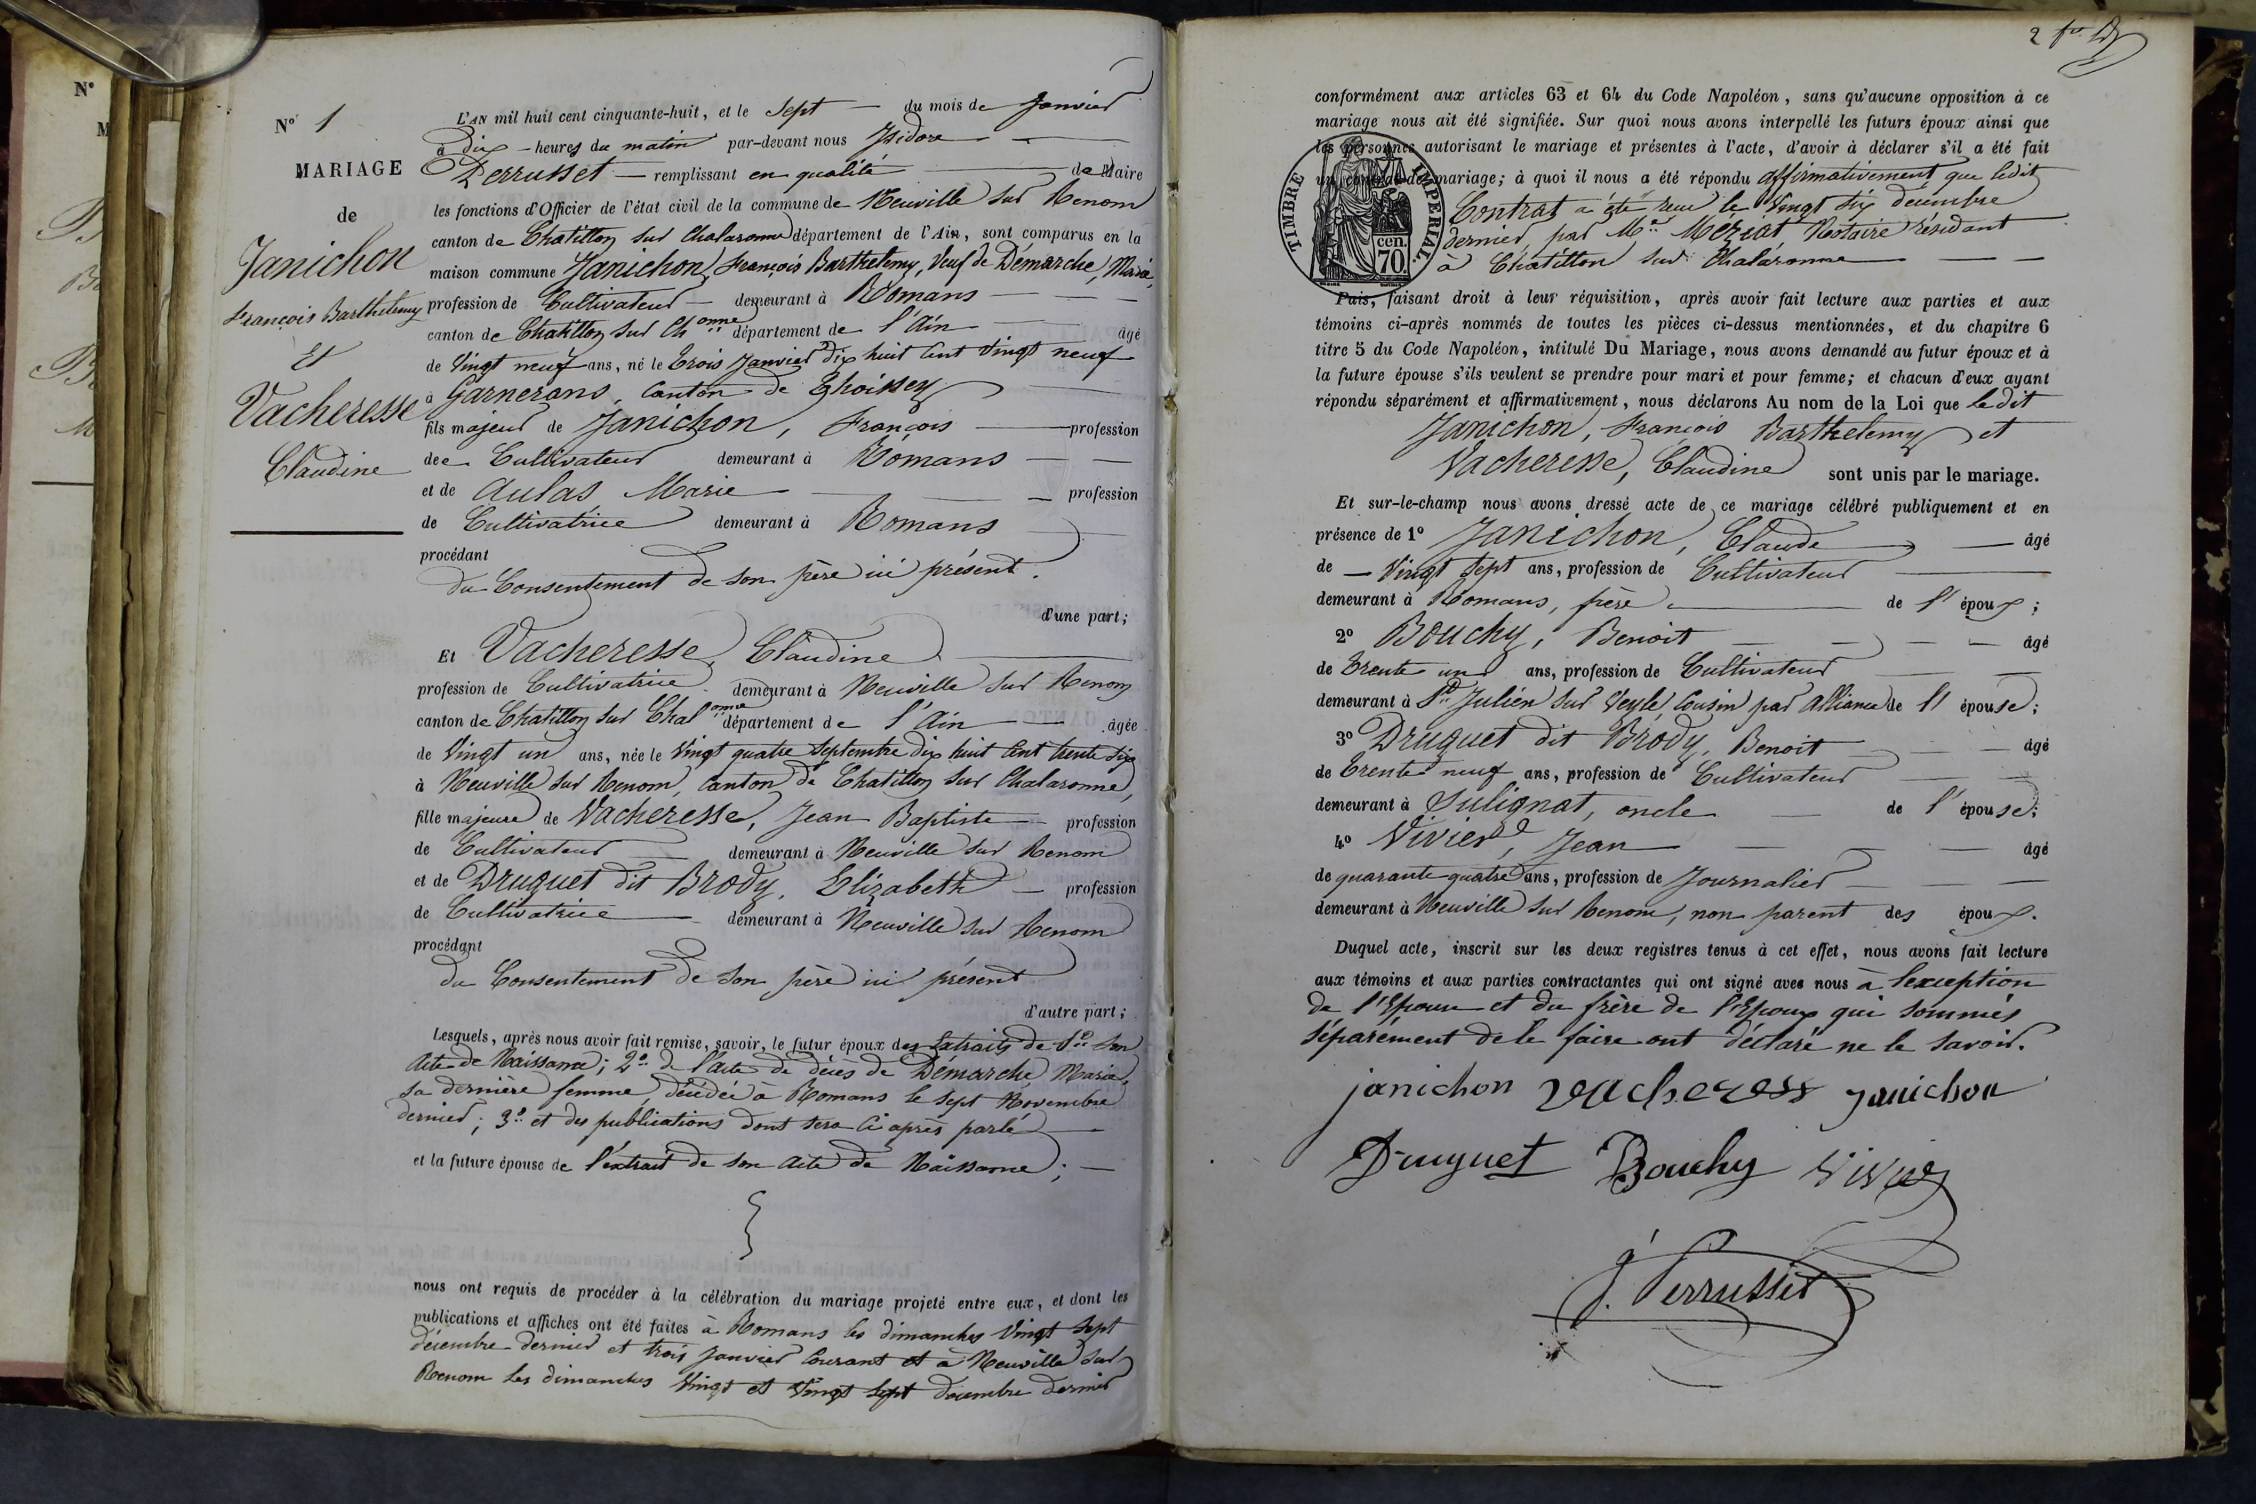 N°
M
N° 1
MARIAGE
de
Janichon
François Barthelemy
Et
Vacheresse
Claudine
L'AN mil huit cent cinquante-huit, et le sept du mois de Janvier
à dix heures du matin par-devant nous Isidore
Perrusset remplissant en qualité de Maire
les fonctions d'Officier de l'état civil de la commune de Neuville sur Renom
canton de Chatillon sur Chalaronne département de l'Ain, sont comparus en la
maison commune Janichon, François Barthelemy, Veuf de Démarche, Marie,
profession de Cultivateur demeurant à Romans
canton de Chatillon sur Ch onne département de l'Ain âgé
de Vingt neuf ans, né le trois Janvier dix huit Cent Vingt neuf
à Garnerans, Canton de Thoissey
fils majeur de Janichon, François profession
de Cultivateur demeurant à Romans
et de Aulas Marie profession
de Cultivatrice demeurant à Romans
procédant
du Consentement de son père ici présent.
d'une part;
Et Vacheresse, Claudine
profession de Cultivatrice demeurant à Neuville sur Renom
canton de Chatillon sur Chal onne département de l'Ain âgée
de Vingt un ans, née le Vingt quatre Septembre dix huit Cent trente six
à Neuville sur Renom, Canton de Chatillon sur Chalaronne,
fille majeure de Vacheresse, Jean Baptiste profession
de Cultivateur demeurant à Neuville sur Renom
et de Druguet dit Brody, Elizabeth profession
de Cultivatrice demeurant à Neuville sur Renom
procédant
du Consentement de son père ici présent
d'autre part;
Lesquels, après nous avoir fait remise, savoir, le futur époux des Extraits de 1° son
Acte de Naissance; 2° de l'acte de décès de Démarche, Marie,
sa dernière femme, décédée à Romans le sept Novembre
dernier; 3° et des publications dont sera ci après parlé
et la future épouse de l'extrait de son acte de Naissance;
nous ont requis de procéder à la célébration du mariage projeté entre eux, et dont les
publications et affiches ont été faites à Romans les dimanches Vingt sept
décembre dernier et trois Janvier Courant et à Neuville sur
Renom les dimanches Vingt et Vingt sept décembre dernier
2
conformément aux articles 63 et 64 du Code Napoléon, sans qu'aucune opposition à ce
mariage nous ait été signifiée. Sur quoi nous avons interpellé les futurs époux ainsi que
les personnes autorisant le mariage et présentes à l'acte, d'avoir à déclarer s'il a été fait
un contrat de mariage; à quoi il nous a été répondu affirmativement que ledit
Contrat a été reçu le Vingt six décembre
dernier, par Me Meziat Notaire résidant
à Chatillon sur Chalaronne
TIMBRE IMPERIAL.
cen.
70
Puis, faisant droit à leur réquisition, après avoir fait lecture aux parties et aux
témoins ci-après nommés de toutes les pièces ci-dessus mentionnées, et du chapitre 6
titre 5 du Code Napoléon, intitulé Du Mariage, nous avons demandé au futur époux et à
la future épouse s'ils veulent se prendre pour mari et pour femme; et chacun d'eux ayant
répondu séparément et affirmativement, nous déclarons Au nom de la Loi que le dit
Janichon, François Barthelemy et
Vacheresse, Claudine sont unis par le mariage.
Et sur-le-champ nous avons dressé acte de ce mariage célébré publiquement et en
présence de 1° Janichon, Claude âgé
de Vingt sept ans, profession de Cultivateur
demeurant à Romans, frère de l'époux;
2° Bouchy, Benoit âgé
de trente un ans, profession de Cultivateur
demeurant à St Julien sur Veyle Cousin par Alliance de l'épouse;
3° Druguet dit Brody, Benoit âgé
de trente neuf ans, profession de Cultivateur
demeurant à Sulignat, oncle de l'épouse;
4° Vivier, Jean âgé
de quarante quatre ans, profession de Journalier
demeurant à Neuville sur Renom, non parent des époux.
Duquel acte, inscrit sur les deux registres tenus à cet effet, nous avons fait lecture
aux témoins et aux parties contractantes qui ont signé avec nous à l'exception
de l'Epouse et du frère de l'Epoux qui sommés
séparément de le faire ont déclaré ne le savoir.
janichon vacheress janichon
Druguet Bouchy vivier
J. Perrusset